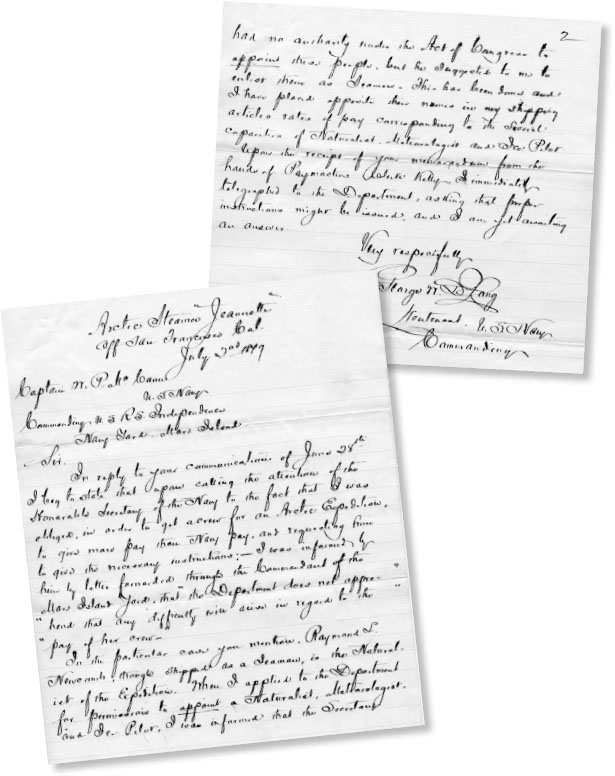 Arctic Steamer Jeannette
Off San Francisco Cal.
July 2nd 1879
Captain W. P. McCann
U.S. Navy
Commanding U.S.R.S. Independence
Navy Yard. Mare Island
Sir.
In reply to your communication of June 28th
I beg to state that upon calling the attention of the
Honorable Secretary of the Navy to the fact that I was
obliged, in order to get a crew for an Arctic Expedition,
to give more pay than Navy pay, and requesting him
to give the necessary instructions;— I was informed by
him by letter forwarded through the Commandant of the
Mare Island Yard, that "the Department does not appre-
" hend that any difficulty will arise in regard to the "
" pay of her crew—
In the particular case you mention, Raymond L.
Newcomb though shipped as a Seaman, is the Natural-
ist of the Expedition. When I applied to the Department
for permission to appoint a Naturalist, Meteorologist,
and Ice Pilot, I was informed that the Secretary
2
had no authority under the Act of Congress to
appoint these people, but he suggested to me to
enlist them as Seamen. This has been done and
I have placed opposite their names in my shipping
articles rates of pay corresponding to the special
capacities of Naturalist, Meteorologist and Ice Pilot
Upon the receipt of your memorandum from the
hands of Paymaster's Clerk Kelly I immediately
telegraphed to the Department, asking that proper
instructions might be issued, and I am yet awaiting
an answer.
Very respectfully
George W. De Long
Lieutenant U.S. Navy
Commanding